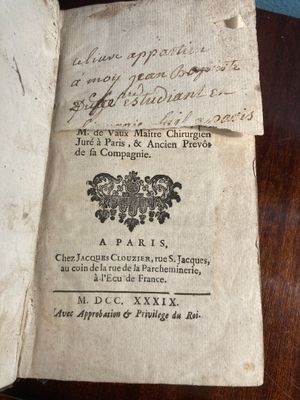 ce livre appartien
a moy jean Baptiste
estudiant en
a paris
M. de Vaux Maître Chirurgien
Juré à Paris, & Ancien Prevôt
de sa Compagnie.
A PARIS,
Chez JACQUES CLOUZIER, rue S. Jacques,
au coin de la rue de la Parcheminerie,
à l'Ecu de France.
M. DCC. XXXIX.
Avec Approbation & Privilege du Roi.